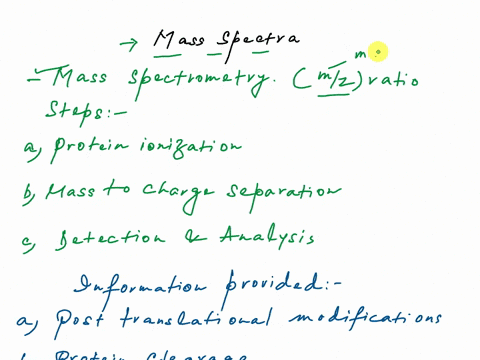 → Mass Spectra
m
- Mass Spectrometry. (m/z) ratio
Steps:-
a, Protein ionization
b, Mass to charge separation
c, Detection & Analysis
Information provided:-
a, Post translational modifications
b, Protein cleavage